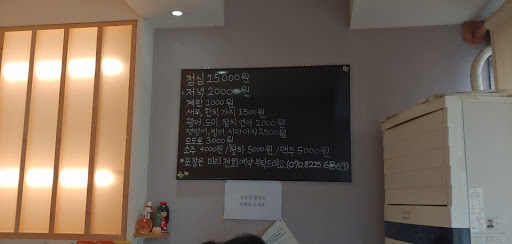 점심 15.000원
저녁 20000원
계란 1000원
새우, 한치, 가지 1500원
광어, 도미, 참치, 연어 2000원
잿방어, 방어, 시마아지 2500원
오도로 3000원
소주 4000원 / 청하 5000원 / 맥주 5000원
*포장은 미리 전화예약 부탁드려요